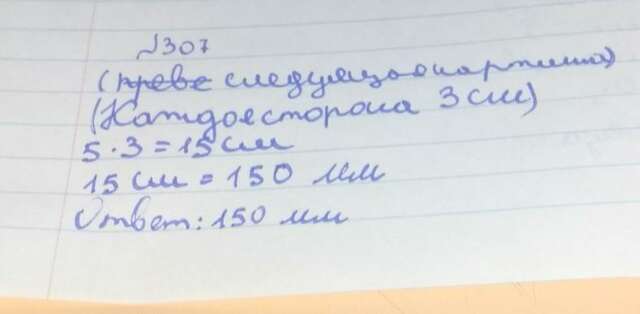 №307
(преве следующая картина)
(Каждое сторона 3 см)
5·3=15 см
15 см = 150 мм
Ответ: 150 мм